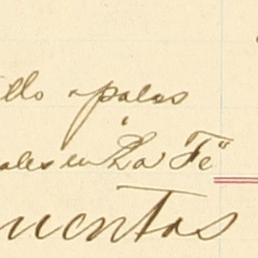 illo palos
ales en "La Fe"
uentas